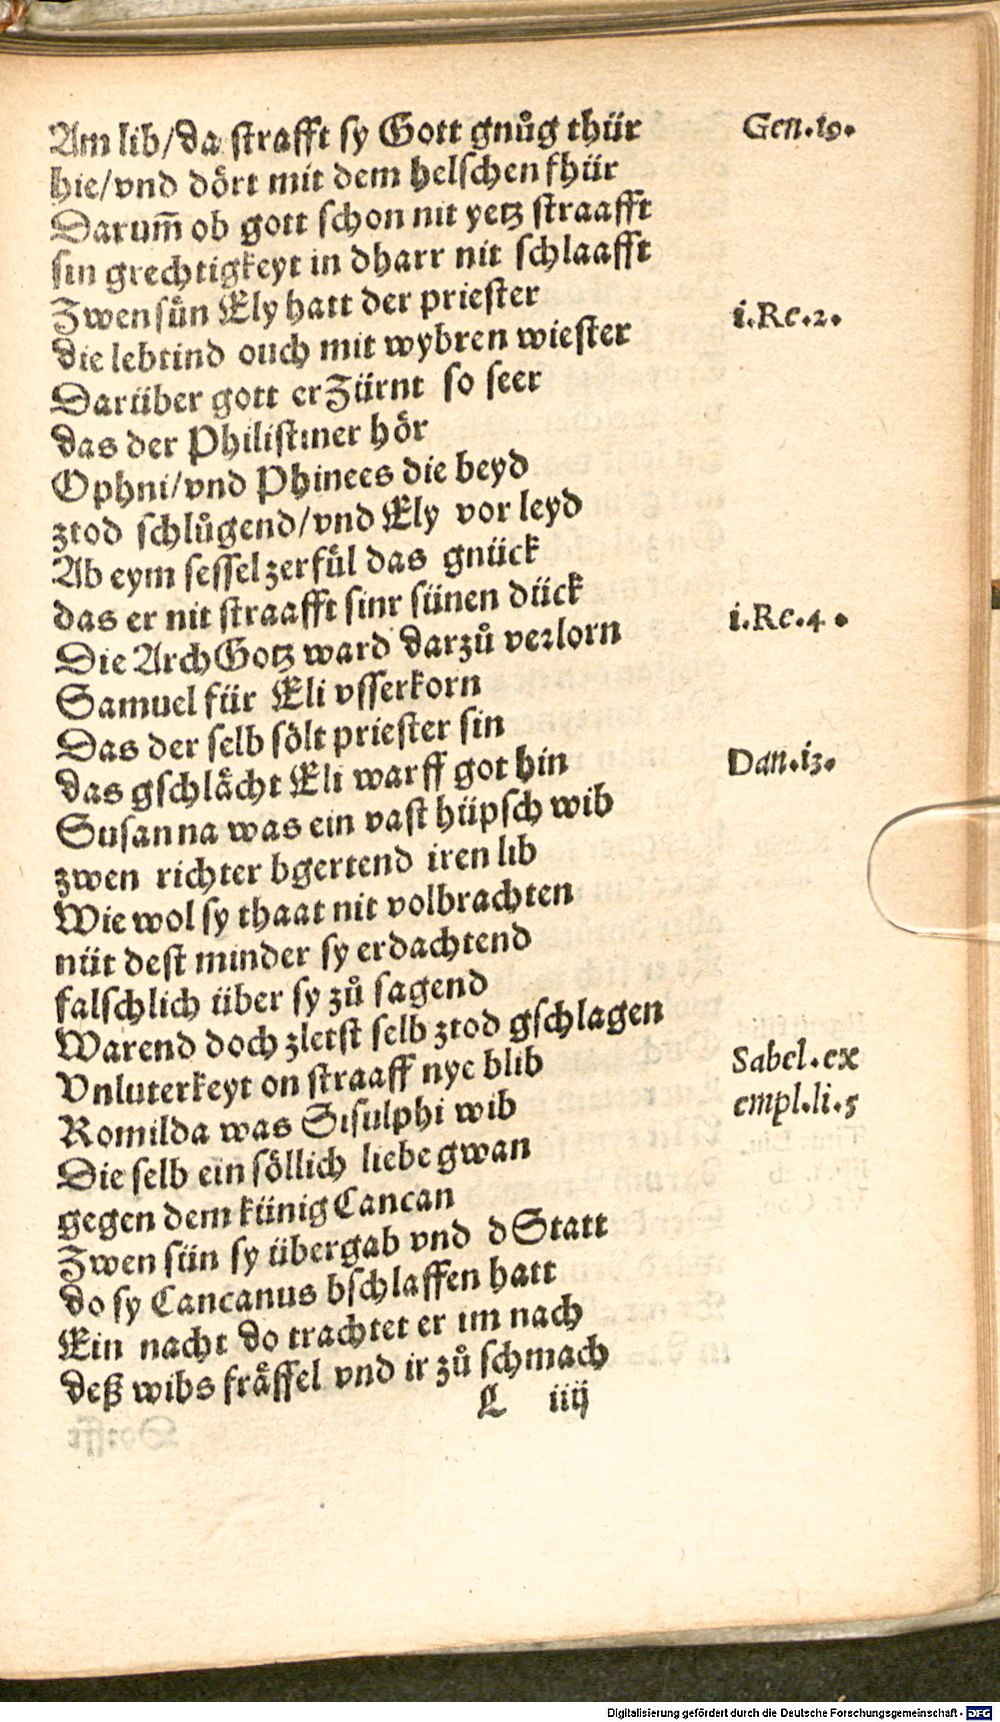 Am lib/da strafft sy Gott gnůg thür
Gen.19.
hie/vnd dört mit dem helschen fhür
Darum̃ ob gott schon nit yetz straafft
sin grechtigkeyt in dharr nit schlaafft
Zwen sün Ely hatt der priester
i.Re.2.
die lebtind ouch mit wybren wiester
Darüber gott erZürnt so seer
das der Philistiner hör
Ophni/vnd Phinees die beyd
ztod schlůgend/vnd Ely vor leyd
Ab eym sessel zerfül das gnück
das er nit straafft sinr sünen dück
Die Arch Gotz ward darzů verlorn
i.Re.4.
Samuel für Eli vsserkorn
Das der selb sölt priester sin
das gschlächt Eli warff got hin
Susanna was ein vast hüpsch wib
Dan.13.
zwen richter bgertend iren lib
Wie wol sy thaat nit volbrachten
nüt dest minder sy erdachtend
falschlich über sy zů sagend
Warend doch zletst selb ztod gschlagen
Vnluterkeyt on straaff nye blib
Sabel.ex
Romilda was Sisulphi wib
empl.li.5
Die selb ein söllich liebe gwan
gegen dem künig Cancan
Zwen sün sy übergab vnd dStatt
do sy Cancanus bschlaffen hatt
Ein nacht do trachtet er im nach
deß wibs fräffel vnd ir zů schmach
L iiij
Digitalisierung gefördert durch die Deutsche Forschungsgemeinschaft - DFG